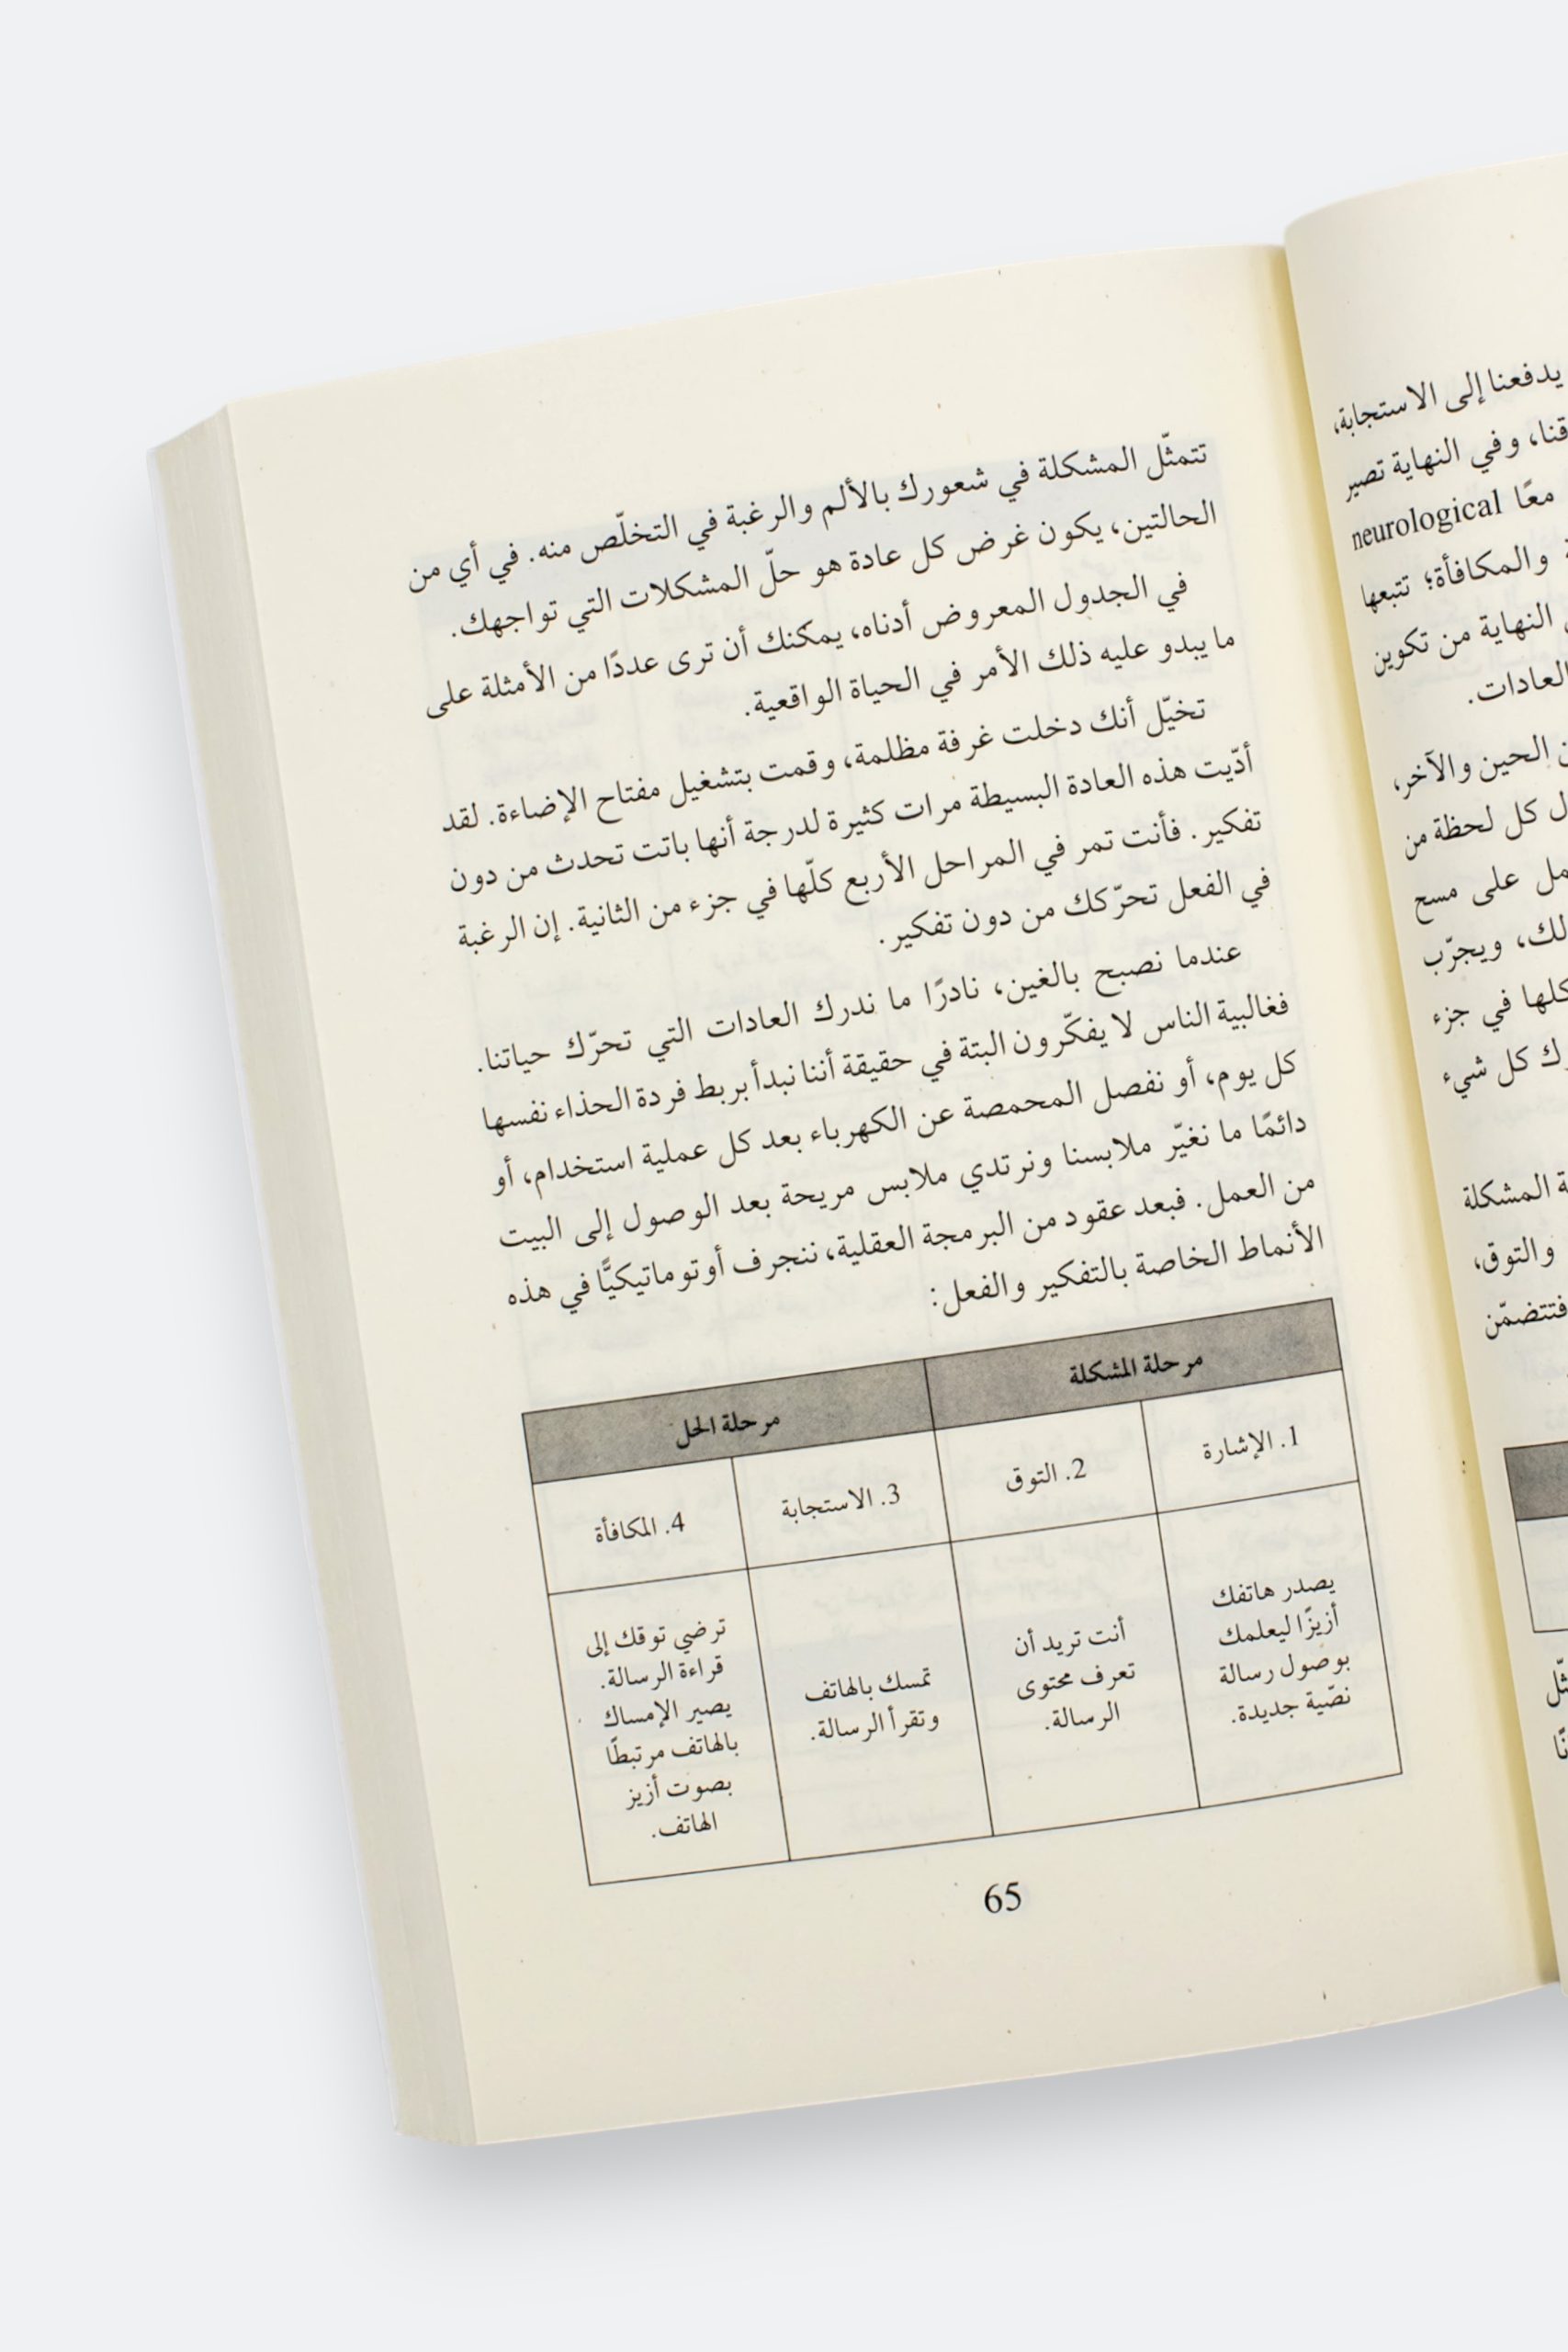 تتمثّل المشكلة في شعورك بالألم والرغبة في التخلّص منه. في أي من
الحالتين، يكون غرض كل عادة هو حلّ المشكلات التي تواجهك.
في الجدول المعروض أدناه، يمكنك أن ترى عددًا من الأمثلة على
ما يبدو عليه ذلك الأمر في الحياة الواقعية.
تخيّل أنك دخلت غرفة مظلمة، وقمت بتشغيل مفتاح الإضاءة. لقد
أدّيت هذه العادة البسيطة مرات كثيرة لدرجة أنها باتت تحدث من دون
تفكير. فأنت تمر في المراحل الأربع كلّها في جزء من الثانية. إن الرغبة
في الفعل تحرّكك من دون تفكير.
عندما نصبح بالغين، نادرًا ما ندرك العادات التي تحرّك حياتنا.
فغالبية الناس لا يفكّرون البتة في حقيقة أننا نبدأ بربط فردة الحذاء نفسها
كل يوم، أو نفصل المحمصة عن الكهرباء بعد كل عملية استخدام، أو
دائمًا ما نغيّر ملابسنا ونرتدي ملابس مريحة بعد الوصول إلى البيت
من العمل. فبعد عقود من البرمجة العقلية، ننجرف أوتوماتيكيًّا في هذه
الأنماط الخاصة بالتفكير والفعل:
مرحلة المشكلة
مرحلة الحل
1. الإشارة
2. التوق
3. الاستجابة
4. المكافأة
يصدر هاتفك
أزيزًا ليعلمك
بوصول رسالة
نصّية جديدة.
أنت تريد أن
تعرف محتوى
الرسالة.
تمسك بالهاتف
وتقرأ الرسالة.
ترضي توقك إلى
قراءة الرسالة.
يصير الإمساك
بالهاتف مرتبطًا
بصوت أزيز
الهاتف.
65
يدفعنا إلى الاستجابة،
وفي النهاية تصير
معًا neurological
والمكافأة؛ تتبعها
النهاية من تكوين
العادات.
الحين والآخر،
كل لحظة من
على مسح
ويجرّب
كلها في جزء
كل شيء
المشكلة
والتوق،
فتتضمّن